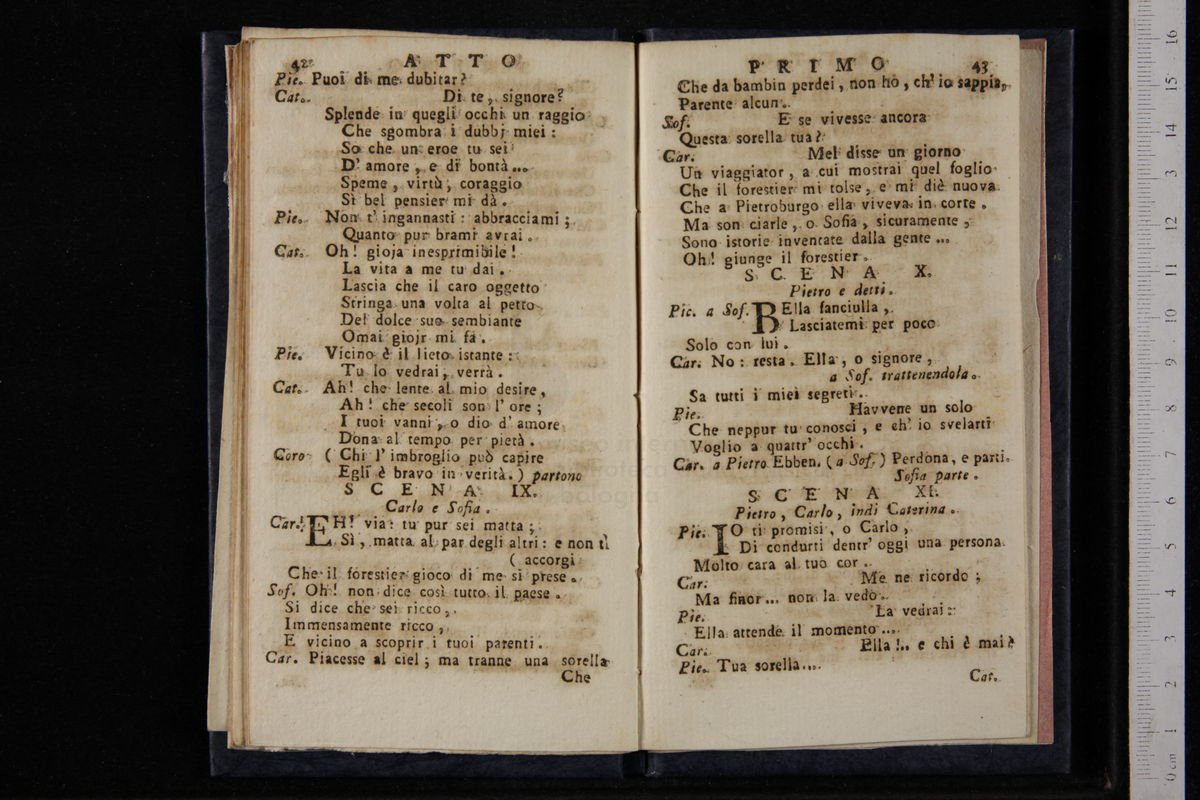 42 ATTO
Pie. Puoi di me dubitar?
Cat. Di te, signore?
Splende in quegli occhi un raggio
Che sgombra i dubbj miei:
So che un eroe tu sei
D' amore, e di bontà...
Speme, virtù, coraggio
Sì bel pensier mi dà.
Pie. Non t' ingannasti: abbracciami;
Quanto pur brami avrai.
Cat. Oh! gioja inesprimibile!
La vita a me tu dai.
Lascia che il caro oggetto
Stringa una volta al petto
Del dolce suo sembiante
Omai gioir mi fa.
Pie. Vicino è il lieto istante:
Tu lo vedrai, verrà.
Cat. Ah! che lente al mio desire,
Ah! che secoli son l' ore;
I tuoi vanni, o dio d' amore
Dona al tempo per pietà.
Coro (Chi l' imbroglio può capire
Egli è bravo in verità.) partono
SCENA IX.
Carlo e Sofia.
Car. EH! via: tu pur sei matta;
Sì, matta al par degli altri: e non ti
( accorgi
Che il forestier gioco di me si prese.
Sof. Oh! non dice così tutto il paese.
Si dice che sei ricco,
Immensamente ricco,
E vicino a scoprir i tuoi parenti.
Car. Piacesse al ciel; ma tranne una sorella
Che
PRIMO 43
Che da bambin perdei, non ho, ch' io sappia,
Parente alcun.
Sof. E se vivesse ancora
Questa sorella tua?
Car. Mel disse un giorno
Un viaggiator, a cui mostrai quel foglio
Che il forestier mi tolse, e mi diè nuova
Che a Pietroburgo ella viveva in corte.
Ma son ciarle, o Sofia, sicuramente,
Sono istorie inventate dalla gente...
Oh! giunge il forestier.
SCENA X.
Pietro e detti.
Pie. a Sof. BElla fanciulla,
Lasciatemi per poco
Solo con lui.
Car. No: resta. Ella, o signore,
a Sof. trattenendola.
Sa tutti i miei segreti.
Pie. Havvene un solo
Che neppur tu conosci, e ch' io svelarti
Voglio a quattr' occhi.
Car. a Pietro Ebben. (a Sof.) Perdona, e parti.
Sofia parte.
SCENA XI.
Pietro, Carlo, indi Caterina.
Pie. IO ti promisi, o Carlo,
Di condurti dentr' oggi una persona
Molto cara al tuo cor.
Car. Me ne ricordo;
Ma finor... non la vedo.
Pie. La vedrai:
Ella attende il momento....
Car. Ella!.. e chi è mai?
Pie. Tua sorella....
Cat.